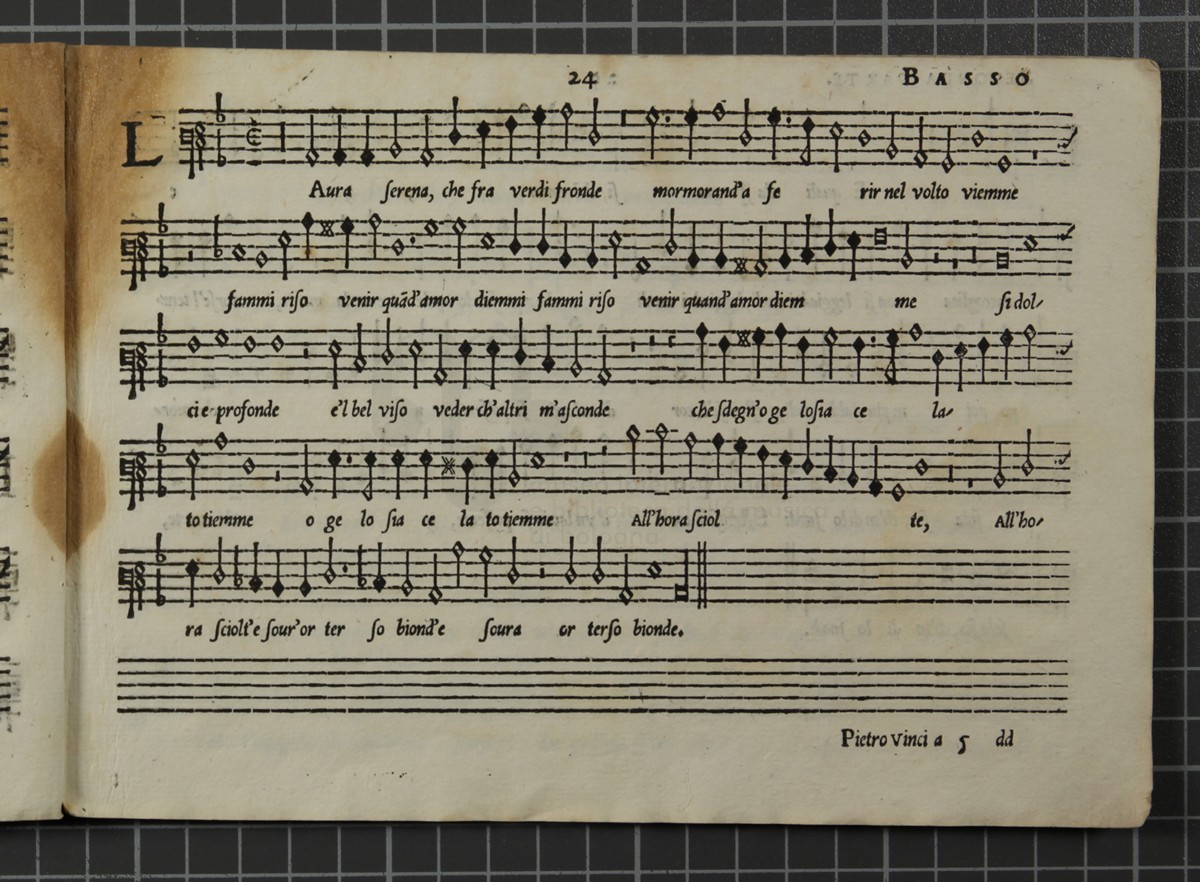 24 BASSO
L Aura serena, che fra verdi fronde mormorand'a fe rir nel volto viemme
fammi riso venir quãd'amor diemmi fammi riso venir quand'amor diem me si dol-
ci e profonde e'l bel viso veder ch'altri m'asconde che sdegn'o ge losia ce la-
to tiemme o ge lo sia ce la to tiemme All'hora sciol te, All'ho-
ra sciolt'e sour'or ter so biond'e soura or terso bionde.
Pietro vinci a 5 dd